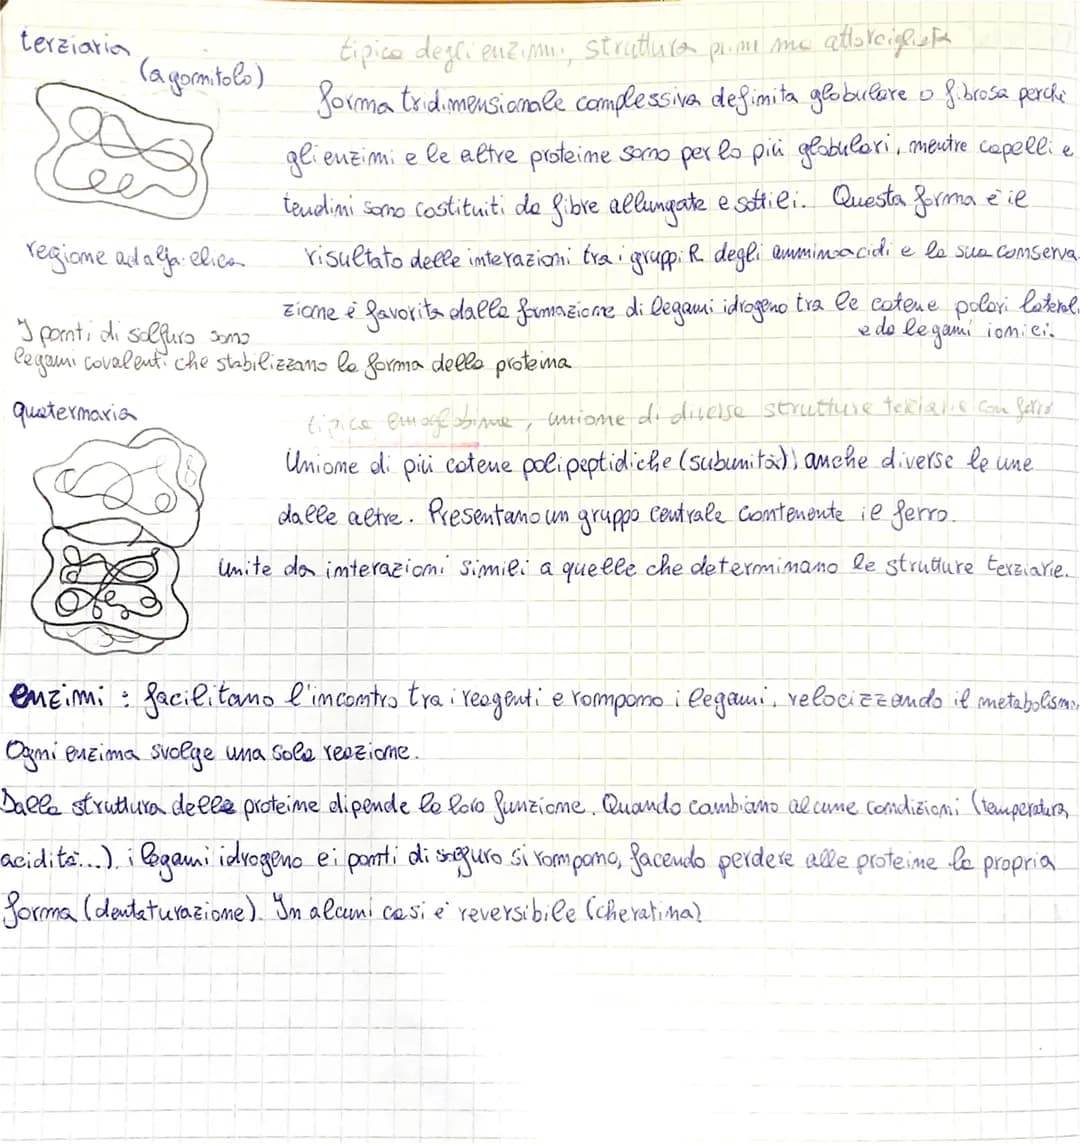 terziaria
(a gomitolo)
tipica degli enzimi, struttura prime ma attorcigliata
forma tridimensionale complessiva definita globulare o fibrosa perché
gli enzimi e le altre proteine sono per lo più globulari, mentre capelli e
tendini sono costituiti da fibre allungate e sottili. Questa forma è il
regione ad alfa elica
risultato delle interazioni tra i gruppi R degli amminoacidi e la sua conserva
zione è favorita dalla formazione di legami idrogeno tra le catene polari laterali
e da legami ionici.
I ponti di solfuro sono
legami covalenti che stabilizzano la forma della proteina
quaternaria
tipica emoglobina, unione di diverse strutture terziarie con ferro
Unione di più catene polipeptidiche (subunità), anche diverse le une
dalle altre. Presentano un gruppo centrale contenente il ferro.
Unite da interazioni simili a quelle che determinano le strutture terziarie.
enzimi: facilitano l'incontro tra i reagenti e rompono i legami, velocizzando il metabolismo.
Ogni enzima svolge una sola reazione.
Dalla struttura delle proteine dipende la loro funzione. Quando cambiano alcune condizioni (temperatura,
acidità...), i legami idrogeno e i ponti di solfuro si rompono, facendo perdere alle proteine la propria
forma (dentaturazione). In alcuni casi è reversibile (cheratina)